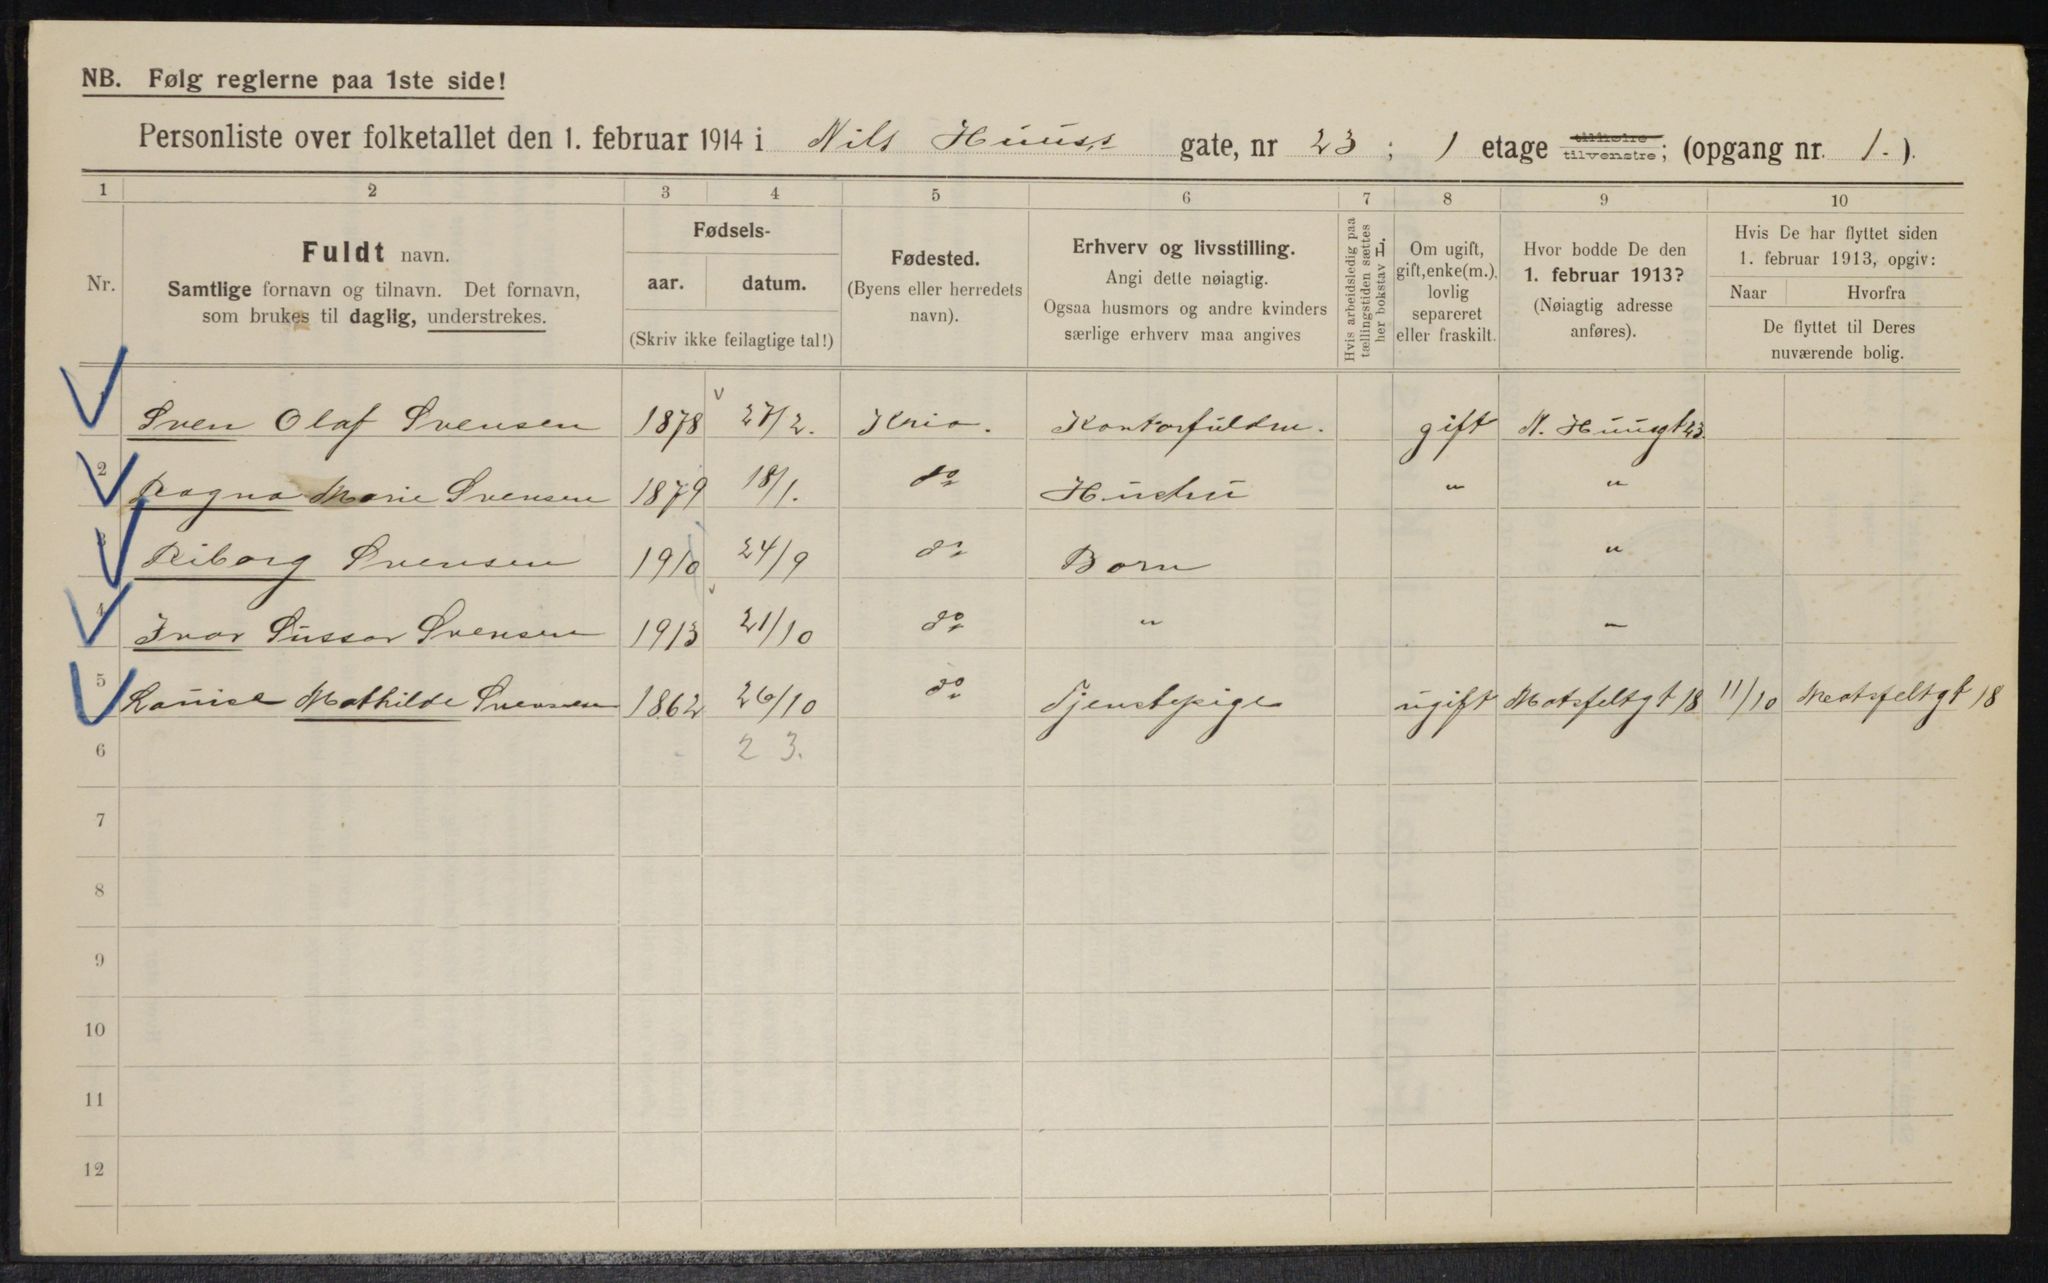 NB. Følg reglerne paa 1ste side!
Personliste over folketallet den 1. februar 1914 i Nils Huuss gate, nr 23; 1 etage tilhøire tilvenstre; (opgang nr. 1.).
1 2 3 4 5 6 7 8 9 10
Nr.
Fuldt navn.
Samtlige fornavn og tilnavn. Det fornavn,
som brukes til daglig, understrekes.
Fødsels-
aar. datum.
(Skriv ikke feilagtige tal!)
Fødested.
(Byens eller herredets
navn).
Erhverv og livsstilling.
Angi dette nøiagtig.
Ogsaa husmors og andre kvinders
særlige erhverv maa angives
Hvis arbeidsledig paa
tællingstiden sættes
her bokstav L.
Om ugift,
gift, enke(m.),
lovlig
separeret
eller fraskilt.
Hvor bodde De den
1. februar 1913?
(Nøiagtig adresse
anføres).
Hvis De har flyttet siden
1. februar 1913, opgiv:
Naar Hvorfra
De flyttet til Deres
nuværende bolig.
Sven Olaf Svensen 1878 27/2. Kria. Kontorfuldm. gift N. Huusgt 23
2 Ragna Marie Svensen 1879 18/1. do Hustru " "
3 Riborg Svensen 1910 24/9 do Barn "
4 Ivar Sussar Svensen 1913 21/10 do " —
5 Louise Mathilde Svensen 1862 26/10 do Tjenstepige ugift Motsfeltgt 18 11/10 Motsfeltgt 18
6 2 3.
7
8
9
10
11
12